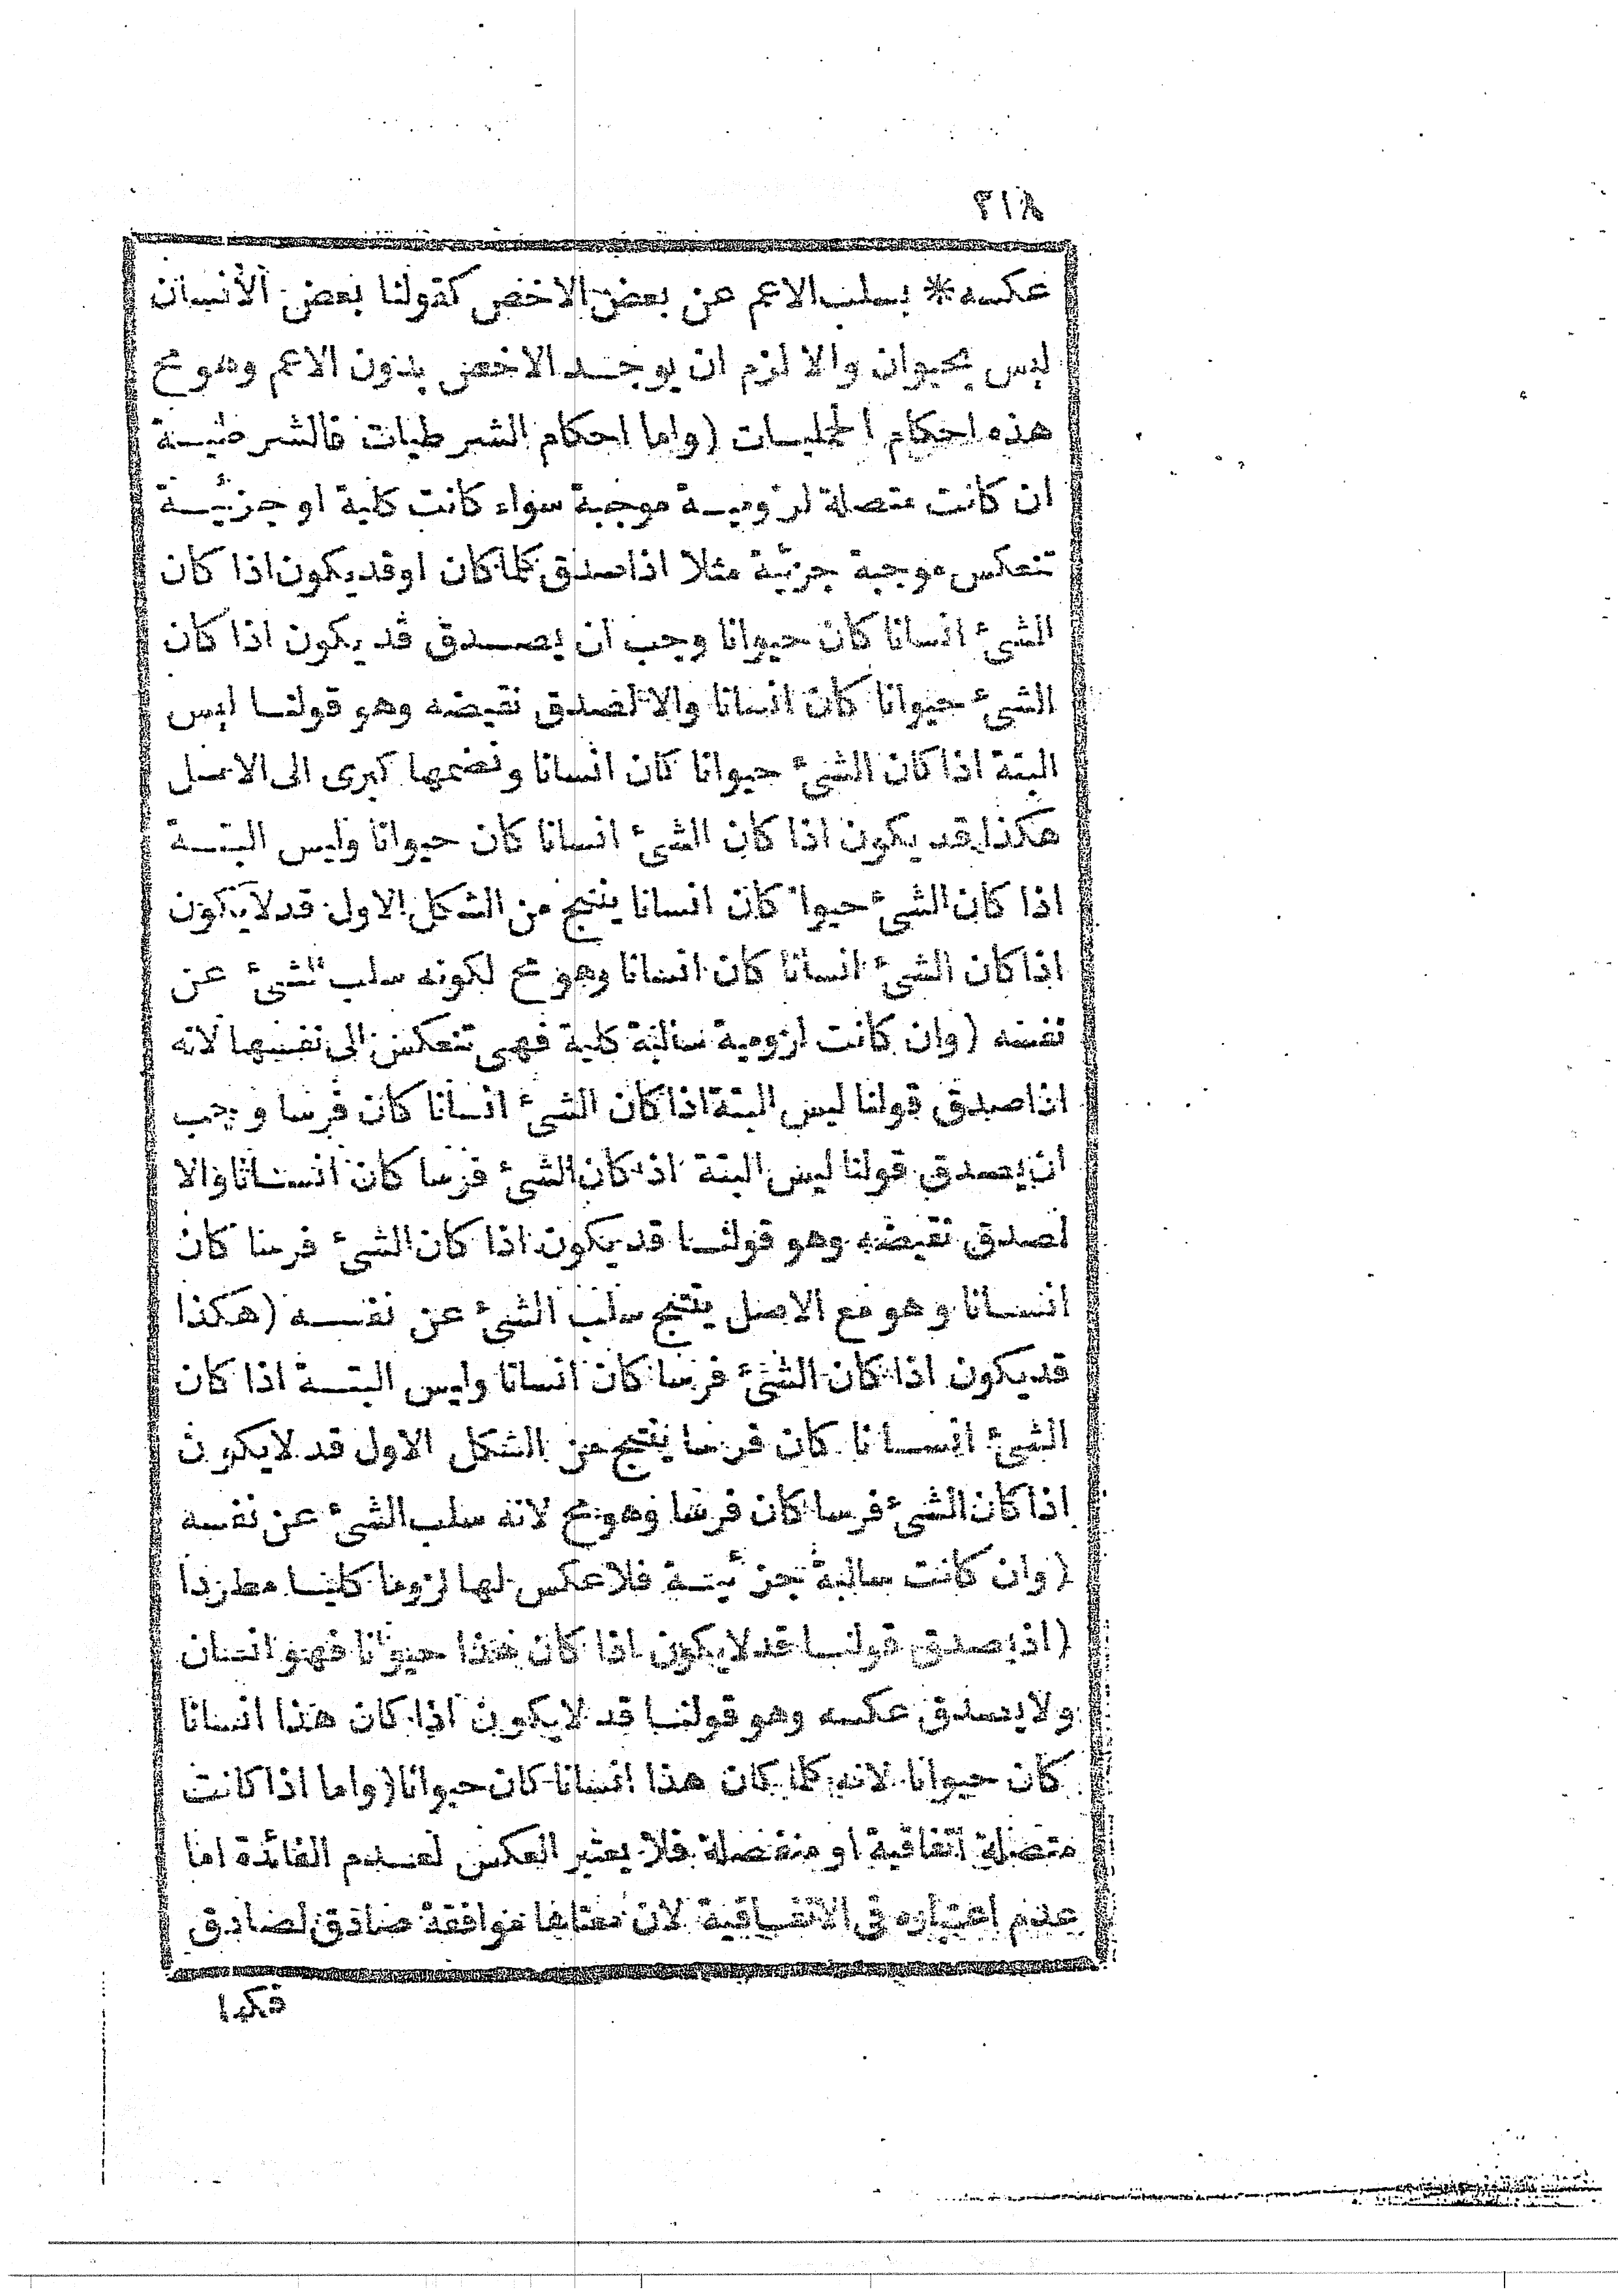 ٢١٨
عكسه * بسلب الاعم عن بعض الاخص كقولنا بعض الانسان
ليس بحيوان والا لزم ان يوجد الاخص بدون الاعم وهو مح
هذه احكام الحمليات (واما احكام الشرطيات فالشرطية
ان كانت متصلة لزومية موجبة سواء كانت كلية او جزئية
تنعكس موجبة جزئية مثلا اذا صدق كلما كان او قد يكون اذا كان
الشئ انسانا كان حيوانا وجب ان يصدق قد يكون اذا كان
الشئ حيوانا كان انسانا والا لصدق نقيضه وهو قولنا ليس
البتة اذا كان الشئ حيوانا كان انسانا ونضمها كبرى الى الاصل
هكذا قد يكون اذا كان الشئ انسانا كان حيوانا وليس البتة
اذا كان الشئ حيوا كان انسانا ينتج من الشكل الاول قد لا يكون
اذا كان الشئ انسانا كان انسانا وهو مح لكونه سلب الشئ عن
نفسه (وان كانت لزومية سالبة كلية فهى تنعكس الى نفسها لانه
اذا صدق قولنا ليس البتة اذا كان الشئ انسانا كان فرسا وجب
ان يصدق قولنا ليس البتة اذا كان الشئ فرسا كان انسانا والا
لصدق نقيضه وهو قولنا قد يكون اذا كان الشئ فرسا كان
انسانا وهو مع الاصل ينتج سلب الشئ عن نفسه (هكذا
قد يكون اذا كان الشئ فرسا كان انسانا وليس البتة اذا كان
الشئ انسانا كان فرسا ينتج من الشكل الاول قد لا يكون
اذا كان الشئ فرسا كان فرسا وهو مح لانه سلب الشئ عن نفسه
(وان كانت سالبة جزئية فلا عكس لها لزوما كليا مطردا
(اذ يصدق قولنا قد لا يكون اذا كان هذا حيوانا فهو انسان
ولا يصدق عكسه وهو قولنا قد لا يكون اذا كان هذا انسانا
كان حيوانا لانه كلما كان هذا انسانا كان حيوانا (واما اذا كانت
متصلة اتفاقية او منفصلة فلا يعتبر العكس لعدم الفائدة اما
عدم اعتباره فى الاتفاقية لان معناها موافقة صادق لصادق
فكما